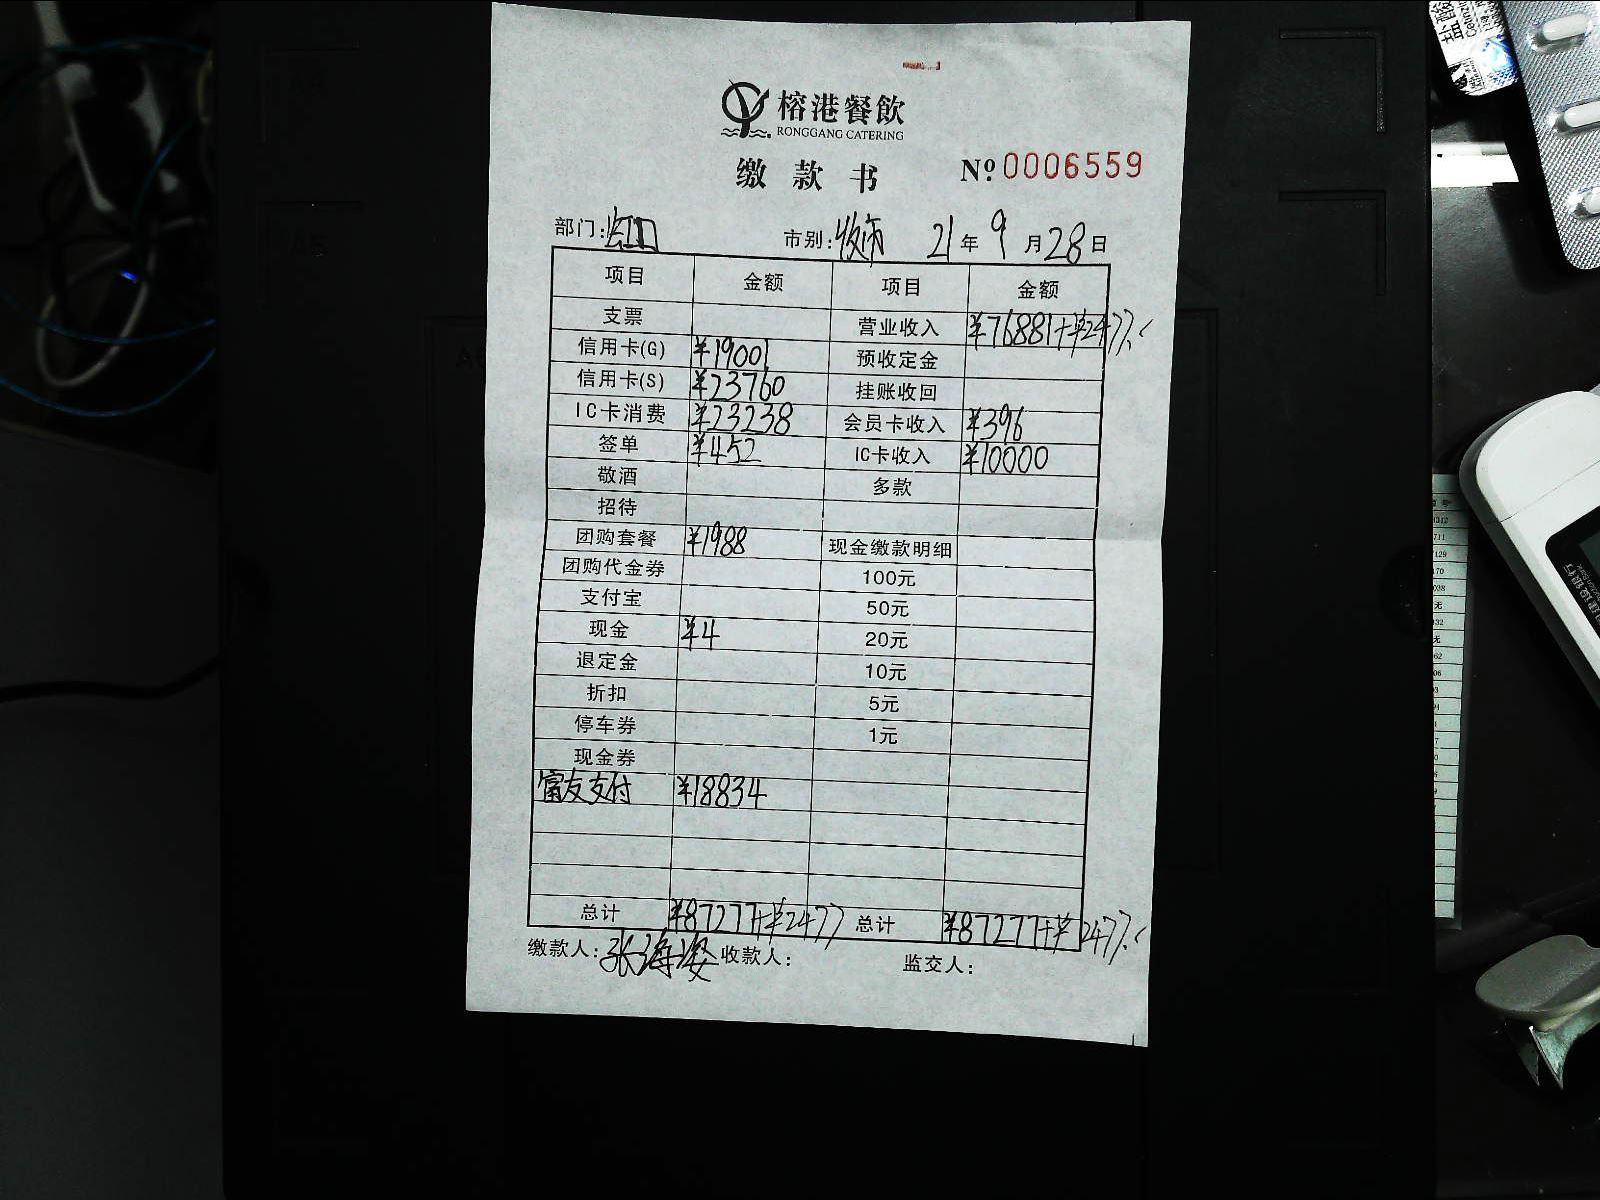 榕港餐飲
RONGGANG CATERING
缴款书 Nº 0006559
部门: 虹口 市别: 收市 21年9月28日
项目 金额 项目 金额
支票 营业收入 ¥76881+¥2477
信用卡(G) ¥19001 预收定金
信用卡(S) ¥23760 挂账收回
IC卡消费 ¥23238 会员卡收入 ¥396
签单 ¥452 IC卡收入 ¥10000
敬酒 多款
招待
团购套餐 ¥1988 现金缴款明细
团购代金券 100元
支付宝 50元
现金 ¥4 20元
退定金 10元
折扣 5元
停车券 1元
现金券
富友支付 ¥18834
总计 ¥87277+¥2477 总计 ¥87277+¥2477
缴款人: 张海 收款人: 监交人: